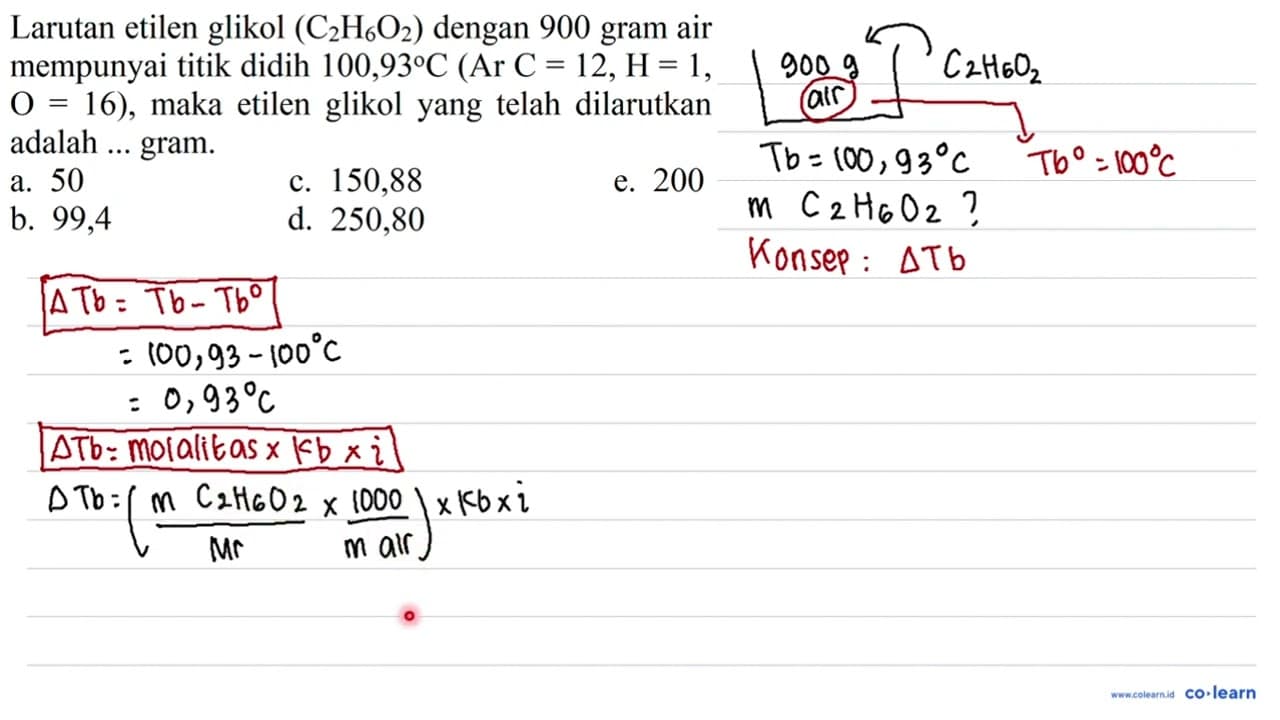 Larutan etilen glikol (C₂H₆O₂) dengan 900 gram air
mempunyai titik didih 100,93°C (Ar C = 12, H = 1,
O = 16), maka etilen glikol yang telah dilarutkan
adalah ... gram.
a. 50 c. 150,88 e. 200
b. 99,4 d. 250,80
900 g C₂H₆O₂
air
Tb = 100,93°C Tb° = 100°C
m C₂H₆O₂ ?
Konsep : ΔTb
ΔTb = Tb - Tb°
= 100,93 - 100°C
= 0,93°C
ΔTb = molalitas x Kb x i
ΔTb = ( m C₂H₆O₂ x 1000 ) x Kb x i
Mr m air
www.colearn.id co·learn